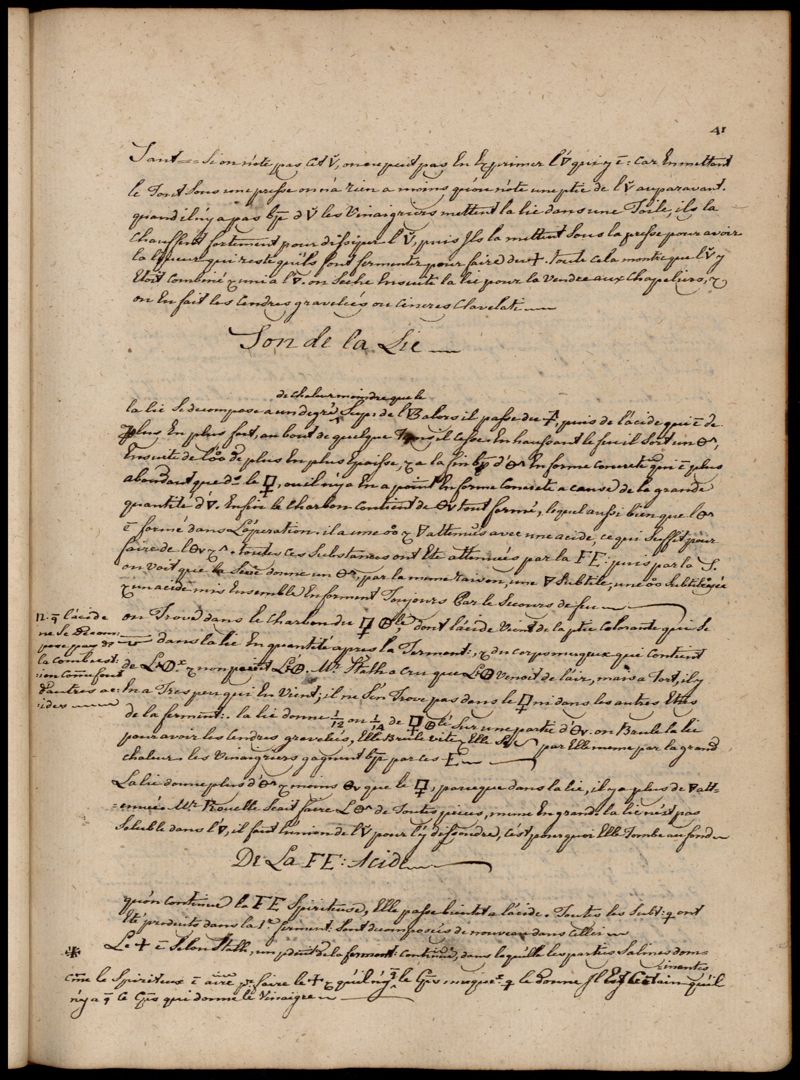 41
Tant = Si on n'ote pas cet V̆, on ne peut pas En Exprimer l'∇ qui y ē: car En mettant
le Tout Sous une presse on n'a rien a moins qu'on n'ote une ptie de l'V̆ auparavant.
quand il n'y a pas bp̄ d'V̆ les Vinaigriers mettent la lie dans une Toile, ils la
Chauffent fortement pour dissiper l'V̆, puis Ils la mettent Sous la presse pour avoir
la liqueur qui reste qu'ils font fermenter pour faire du 🜊. toute cela montre que l'V̆ y
Etoit Combiné & uni a l'∇. on Seche Ensuite la lie pour la Vendre aux Chapeliers, &
on En fait les Cendres gravelées ou Cineres Clavelati
Son de la Lie
de chaleur moindre que le
la lie Se decompose a un degré Sup: de l'∇ alors il passe du 🜊, puis de l'acide qui ē de
plus En plus fort, au bout de quelque Tems il cesse. En haussant le feu il Sort un 🜔ʳ,
Ensuite de l'o°o de plus En plus Epaisse, & a la fin bp̄ d'🜔ʳ En forme Concrete qui ē plus
abondant que dˢ le 🜿, ou il n'y a En a point En forme Concrete a cause de la grande
quantité d'∇. Enfin le Charbon Contient de 🜔v tout formé, lequel aussi bien que l'🜔ʳ
ē formé dans L'operation. il a une o°o & ∇ attenués avec une acide, ce qui Suffit pour
faire de l'🜔v & ʳ. toutes ces Substances ont Eté attenuées par la FE: puis par la
on voit que la Seve donne un 🜔ʳ, par la meme raison, une ∇ Subtile, une o°o Subtilisée
& un acide mis Ensemble En forment Toujours Par le Secours de feu
on Trouve dans le Charbon du 🜿 dont l'acide Vient de la ptie Colorante qui Se
dans la lie En quantité apres la Ferment: & du corps muqueux qui contient
de & non point Mʳ Stalh a cru que Venoit de l'air, mais a Tort, il y
En a Tres peu qui En Vient; il ne S'en Trouve pas dans le 🜿 ni dans les autres Etres
de la ferment:. la lie donne 1/12 ou 1/14 de 🜿 Sur une partie d'🜔v. on Brule la lie
pour avoir les Cendres gravelées, Elle Brule vite, & Elle Se par Elle meme par la grand
chaleur. les Vinaigriers gagnent bp̄ par ces E
12. q̄ l'acide
ne Se decom
pose pas pʳ
la Combust:
ion Come font
d'autres ac=
ides
La lie donne plus d'🜔ʳ & moins 🜔v que le 🜿, parceque dans la lie, il y a plus de ∇ att=
=enuée Mʳ Rouelle Scait faire L'🜔ʳ de Toutes pieces, meme En grand. la lie n'est pas
Soluble dans l'∇, il faut l'union de l'V̆ pour l'y dissoudre, c'est pourquoi Elle Tombe au fond
De La FE: Acide
qu'on continue la FE Spiritueuse, Elle passe bientot a l'acide. Toutes les Subt: q ont
Eté produits dans la 1ʳᵉ ferment. Sont decomposées de nouveau dans Celleci
✻ Le 🜊 ē Selon Stalh, un pdnit de la ferment: Continüe, dans laquelle les parties Salines dom=
inentes
cōe le Spiritueux ē aire pʳ faire le 🜊 & qu'il n'y q̄ le Cps̄ muqueˣ q le donne Il Est Certain qu'il
n'y a q̄ ce Cps̄ qui donne le Vinaigre